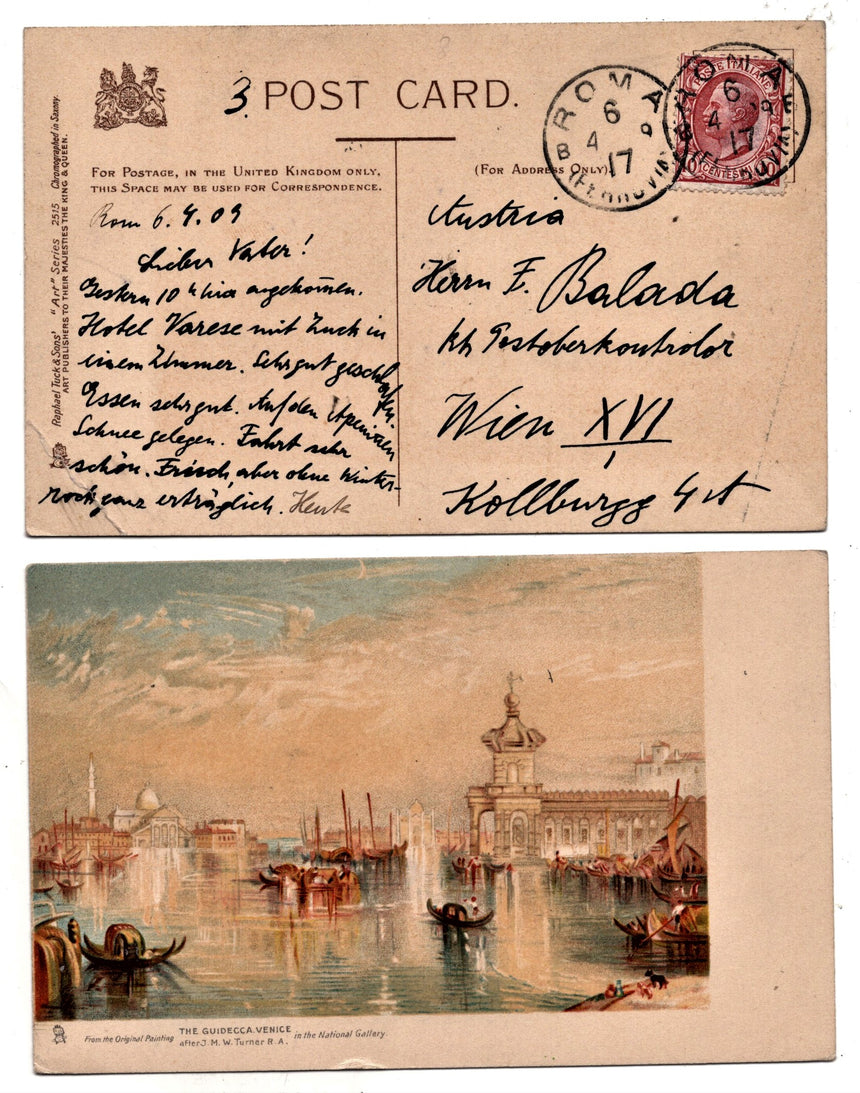 3.
POST CARD.
FOR POSTAGE, IN THE UNITED KINGDOM ONLY,
THIS SPACE MAY BE USED FOR CORRESPONDENCE.
(FOR ADDRESS ONLY)
Raphael Tuck & Sons' "Art" Series 2515 Chromographed in Saxony.
ART PUBLISHERS TO THEIR MAJESTIES THE KING & QUEEN.
ROMA
6
4 9
B 17
(FERROVIA)
ROMA
6
4 9
17
POSTE ITALIANE
CENTESIMI 10
Rom 6.4.09
Lieber Vater!
Gestern 10h hier angekommen.
Hotel Varese mit Zuck in
einem Zimmer. Sehr gut geschlafen.
Essen sehr gut. Auf den Apeninen
Schnee gelegen. Fahrt sehr
schön. Frisch, aber ohne Winter-
rock ganz erträglich. Heute
Austria
Herrn F. Balada
kk Postoberkontrolor
Wien XVI
Kollburgg 4
THE GUIDECCA. VENICE
From the Original Painting after J. M. W. Turner R.A. in the National Gallery.